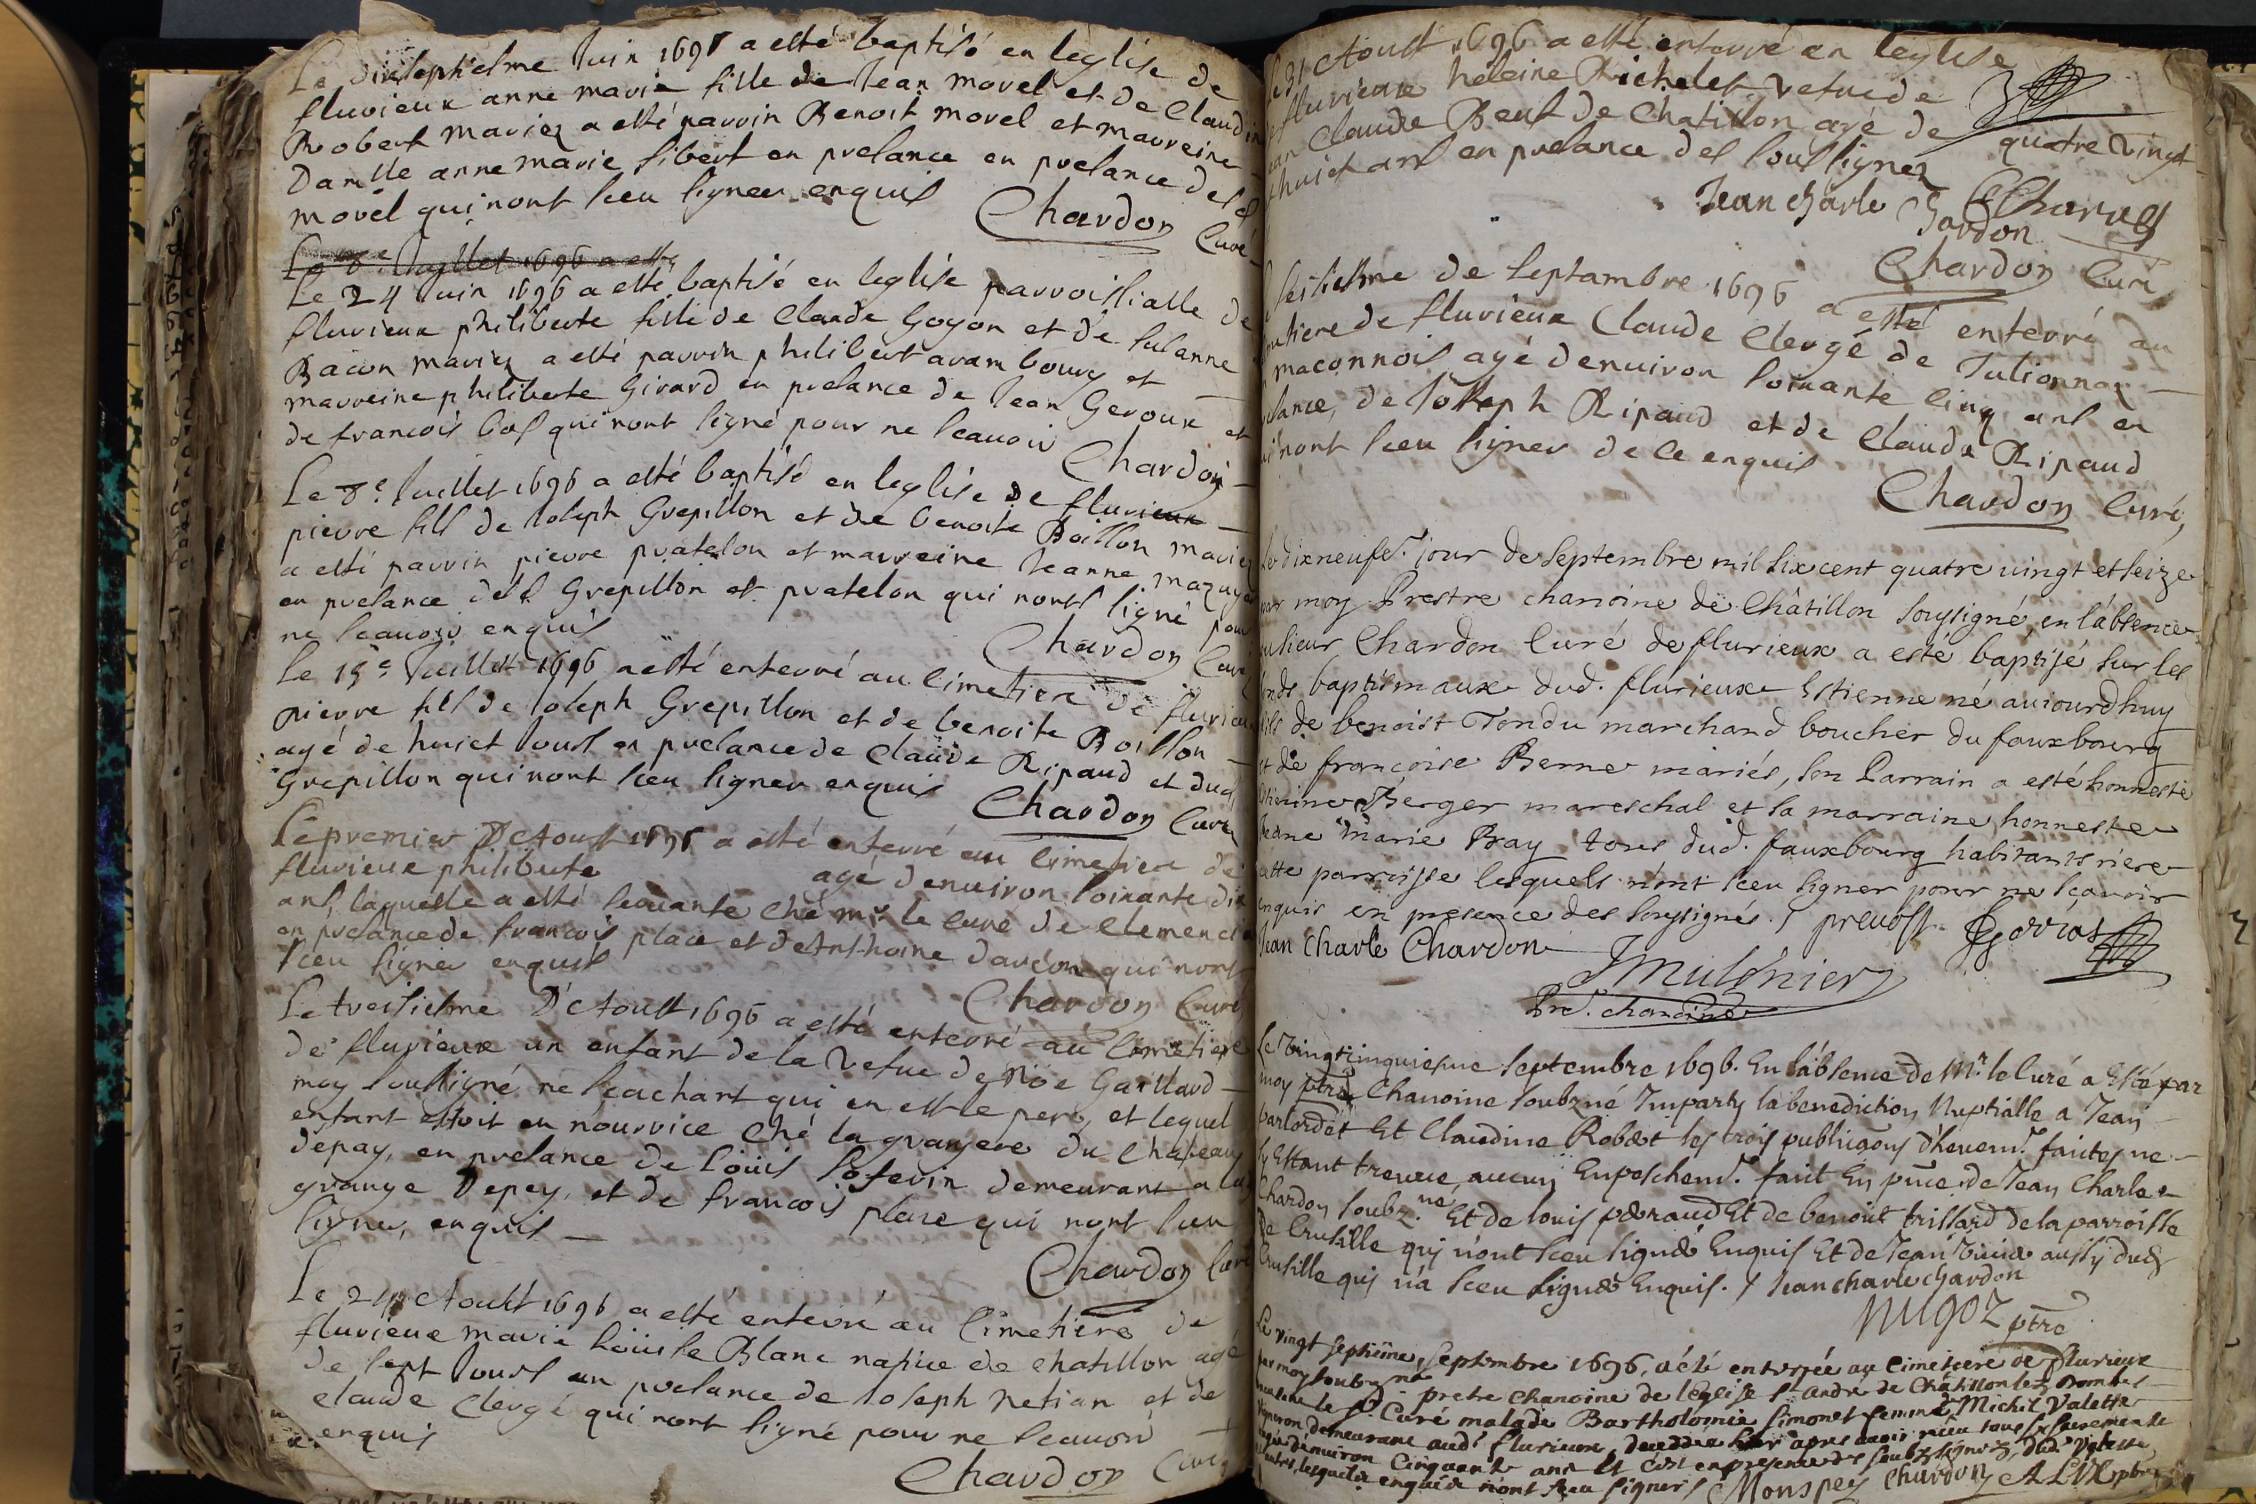 Le dixseptiesme Juin 1696 a esté baptisé en leglise de
fluvieux anne marie fille de Jean morel et de Claudin
Robert mariez a esté parrin Benoist morel et marreine
Damlle anne marie sibert en presance en presance desd
morel qui nont sceu signer enquis Chardon Curé
Le 8e Juillet 1696 a esté
Le 24 Juin 1696 a esté baptisé en leglise parroissialle de
flurieux philiberte fille de Claude Goyon et de susanne
Bacon mariez a esté parrin philibert arambourg et
marreine philiberte Girard en presance de Jean Geroux et
de francois bos qui nont signé pour ne scauoir Chardon
Le 8e Juillet 1696 a esté baptisé en leglise de flurieux
pierre fils de Joseph Grepillon et de benoite Boillon mariez
a esté parrin pierre pratelon et marreine Jeanne mazuyer
en presance desd Grepillon et pratelon qui nont signé pour
ne scauoir enquis Chardon Curé
Le 15e Juillet 1696 a esté enterré au cimetiere de flurieux
pierre fils de Joseph Grepillon et de benoite Boillon
agé de huict Jours en presance de Claude Ripaud et dud
Grepillon qui nont sceu signer enquis Chardon Curé
Le premier D'Aoust 1696 a esté enterré au cimetiere de
flurieux philiberte agé denuiron soixante dix
ans laquelle a esté seruante ché mr le curé de Clemencia
en presance de francois place et de Anthoine dardon qui nont
sceu signer enquis Chardon Curé
Le treisiesme D'Aoust 1696 a esté enterré au cimetiere
de flurieux un enfant de la vefue de Noe Gaillard
moy soussigné ne scachant qui en est le pere, et lequel
enfant estoit en nourrice ché la grangere du chateau
depay, en presance de Louis demeurant a la
grange Depey, et de francois place qui nont sceu
signer, enquis Chardon Curé
Le 24 Aoust 1696 a esté enterré au cimetiere de
flurieux marie Louise Blanc natiue de chatillon agé
de sept Jours en presance de Joseph netian et de
claude Clergé qui nont signé pour ne scauoir
enquis
Chardon Curé
Le 31 Aoust 1696 a esté enterré en leglise
flurieux heleine Richelet vefue de
Jean Claude Beuf de Chatillon agé de quatre vingt
huict ans en presance des soussignez
Jean Charle Chardon
Chardon Curé
sesiesme de septambre 1696 a esté enterré au
cimetiere de flurieux Claude Clergé de Julionnas
maconnois agé denuiron soixante cinq ans en
presance, de Joseph Ripaud et de Claude Ripaud
qui nont sceu signer de ce enquis
Chardon Curé,
Le dixneufe. jour de septembre mil sixcent quatre vingt et seize
par moy Prestre chanoine de Châtillon soussigné, en l'absence
du sieur Chardon Curé de flurieux a esté baptisé sur les
fonds baptismaux dud. flurieux Estienne né aujourdhuy
fils de benoist Tondu marchand boucher du fauxbourg
et de françoise Berne mariés, son Parrain a esté honneste
Estienne Berger mareschal et sa marraine honneste
Jeanne Marie Bray tous dud. fauxbourg habitants riere
cette parroisse lesquels n'ont sceu signer pour ne scauoir
enquis en presence des soussignés. J prevost
Jean Charle Chardon
J Mulsnier
Pre. chanoine
Le Vingtcinquiesme septembre 1696. En l'absence de Mr. le Curé a Esté par
moy ptre Chanoine soubzné Imparty la benediction Nuptialle a Jean
Et Claudine Robert les trois publications dheuemt. faites ne
sy Estant treuué aucun Enpeschemt. fait En pnce de Jean Charle
Chardon soubz.né Et de louis peraud Et de benoit trillard de la parroisse
De Crusille qui n'ont sceu signer Enquis Et de Jean aussy dud
Crusille qui n'a sceu signer Enquis. / Jean charle chardon
Nugoz ptre
Le vingt septiême, septembre 1696, a été enterrée au cimetiere de flurieux
par moy soubzné pretre chanoine de leglise St andré de Châtillon lez Dombes
en absence le sr. Curé malade Bartholomie simonet femme Michel Valette
vigneron demeurant audt flurieux, decedée hier apres avoir receu tous ses sacrements
agée denuiron Cinquante ans Et ce en presence des soubz signez, dud. Valette
autres, lesquels enquis n'ont sceu signer Monspey Chardon ALIX ptre